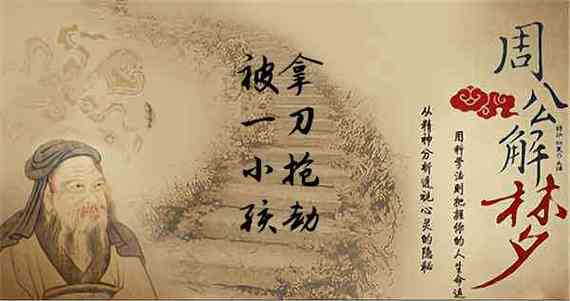 周公解梦
用科学法则把握你的人生命运
从精神分析透视心灵的隐秘
被一小孩
拿刀抢劫